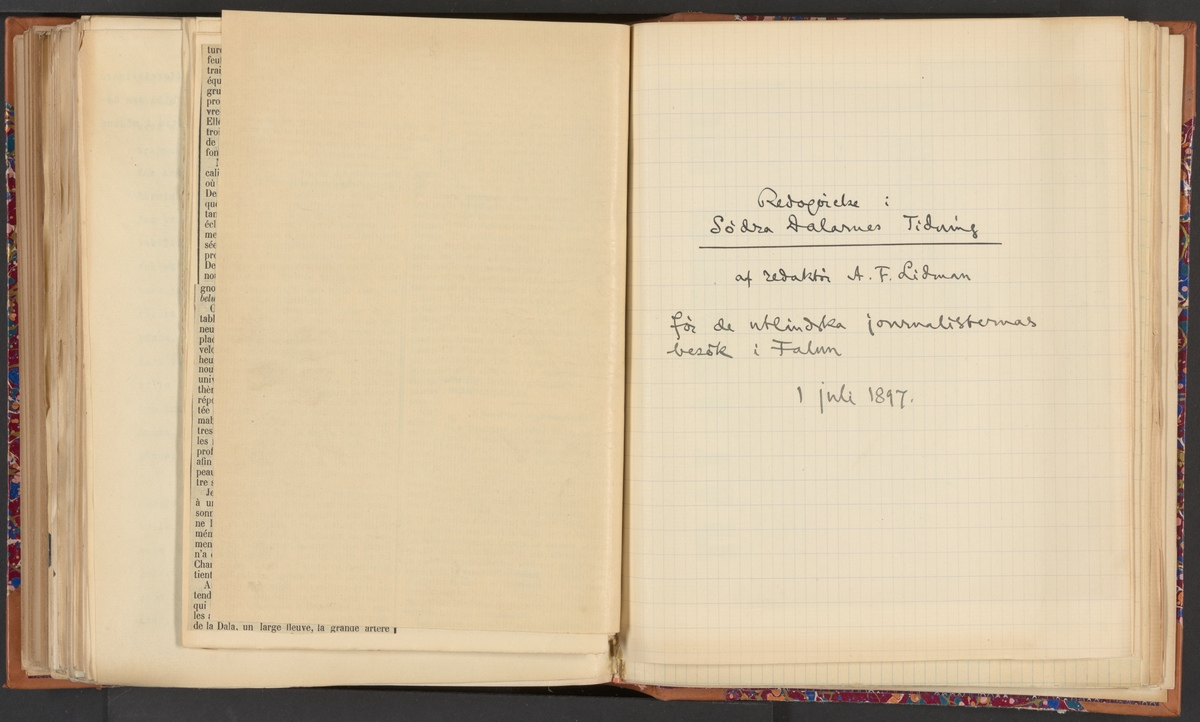 ture
feui
trai
équ
gru
pro
vre
Elle
troi
de
fon
cali
où
De
que
tan
écl
me
séc
pre
De
nou
gno
belu
tabl
neu
plac
velo
heu
nou
univ
thèr
répé
tée
mab
tres
les
prof
afin
peau
tre s
Je
à un
sonn
ne l
mén
men
n'a
Char
tient
A
tend
qui
les
de la Dala, un large fleuve, la grande artère
Redogörelse i
Södra Dalarnes Tidning
af redaktör A. F. Lidman
för de utländska journalisternas
besök i Falun
1 juli 1897.